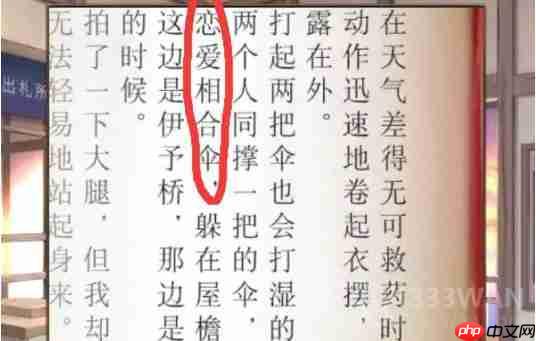 在天气差得无可救药时
动作迅速地卷起衣摆，
露在外。
打起两把伞也会打湿的
两个人同撑一把的伞，
恋爱相合伞，躲在屋檐
这边是伊予桥，那边是
的时候。
拍了一下大腿，但我却
无法轻易地站起身来。
出札所
333WAN
php中文网